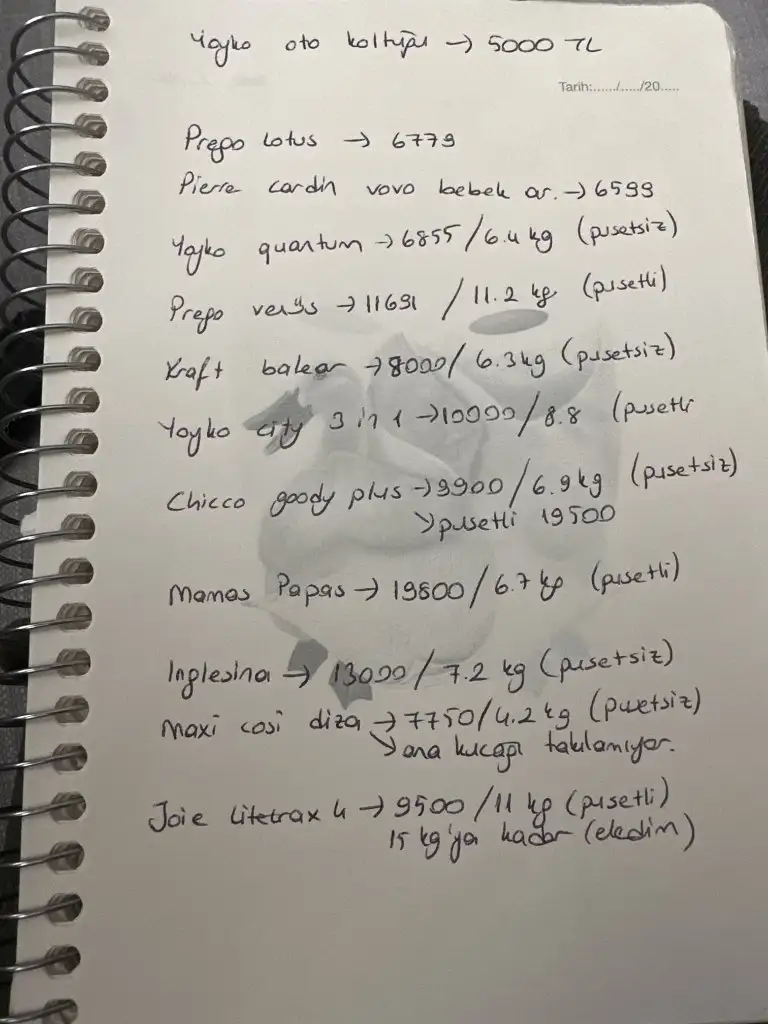 Yoyko oto koltuğu → 5000 TL
Tarih:....../....../20.....
Prego Lotus → 6779
Pierre cardin vovo bebek ar. → 6599
Yoyko quantum → 6855/6.4 kg (pusetsiz)
Prego verüs → 11691 / 11.2 kg (pusetli)
Kraft balear → 8000/ 6.3 kg (pusetsiz)
Yoyko city 3 in 1 → 10000/8.8 (pusetli
Chicco goody plus → 9900/6.9 kg (pusetsiz)
↘ pusetli 19500
Mamas Papas → 19800/6.7 kg (pusetli)
Inglesina → 13000/7.2 kg (pusetsiz)
Maxi cosi diza → 7750/4.2 kg (pusetsiz)
↘ ana kucağı takılamıyor.
Joie Litetrax 4 → 9500/11 kg (pusetli)
15 kg'ya kadar (eledim)